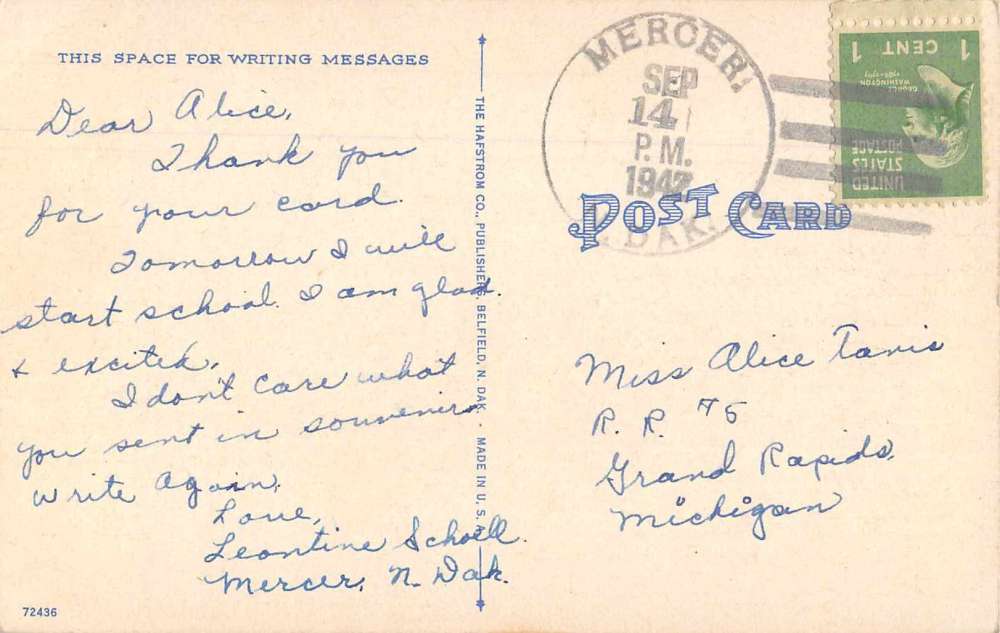 THIS SPACE FOR WRITING MESSAGES
Dear Alice,
Thank you
for your card.
Tomorrow I will
start school. I am glad.
& excited.
I don't care what
you sent in souvenirs
write again.
Love,
Leontine Schoell.
Mercer, N. Dak.
72436
THE HAFSTROM CO., PUBLISHERS, BELFIELD, N. DAK. - MADE IN U. S. A.
MERCER,
SEP
14
P. M.
1947
DAK.
POST CARD
1 CENT 1
GEORGE
WASHINGTON
UNITED
STATES
POSTAGE
Miss Alice Tanis
R. R. #5
Grand Rapids,
Michigan